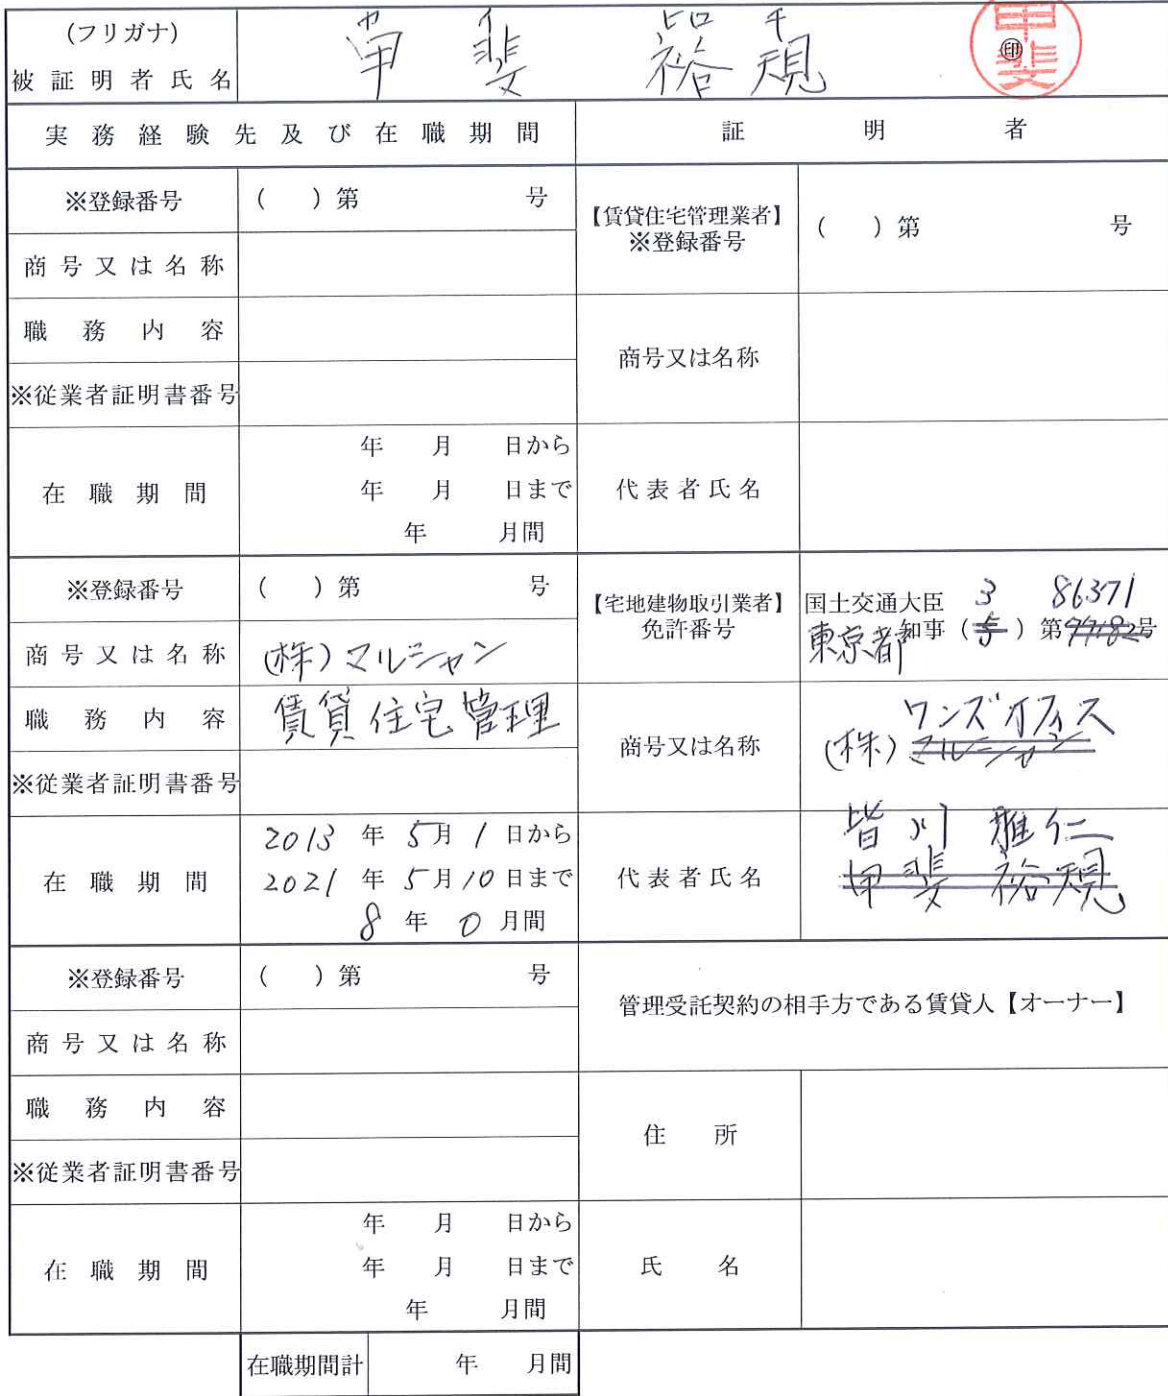 (フリガナ) カイ ヒロキ
被証明者氏名 甲斐 裕規 ㊞ 甲斐
実務経験先及び在職期間 証明者
※登録番号 ( ) 第 号
商号又は名称
職務内容
※従業者証明書番号
在職期間
年 月 日から
年 月 日まで
年 月間
【賃貸住宅管理業者】
※登録番号 ( ) 第 号
商号又は名称
代表者氏名
※登録番号 ( ) 第 号
商号又は名称 (株)マルシャン
職務内容 賃貸住宅管理
※従業者証明書番号
在職期間
2013 年 5月 1 日から
2021 年 5月10日まで
8 年 0 月間
【宅地建物取引業者】
免許番号
国土交通大臣 3 86371
東京都知事 (5) 第77182号
商号又は名称
ワンズオフィス
(株)マルシャン
代表者氏名
皆川 雅仁
甲斐 裕規
※登録番号 ( ) 第 号
商号又は名称
職務内容
※従業者証明書番号
在職期間
年 月 日から
年 月 日まで
年 月間
管理受託契約の相手方である賃貸人【オーナー】
住所
氏名
在職期間計 年 月間